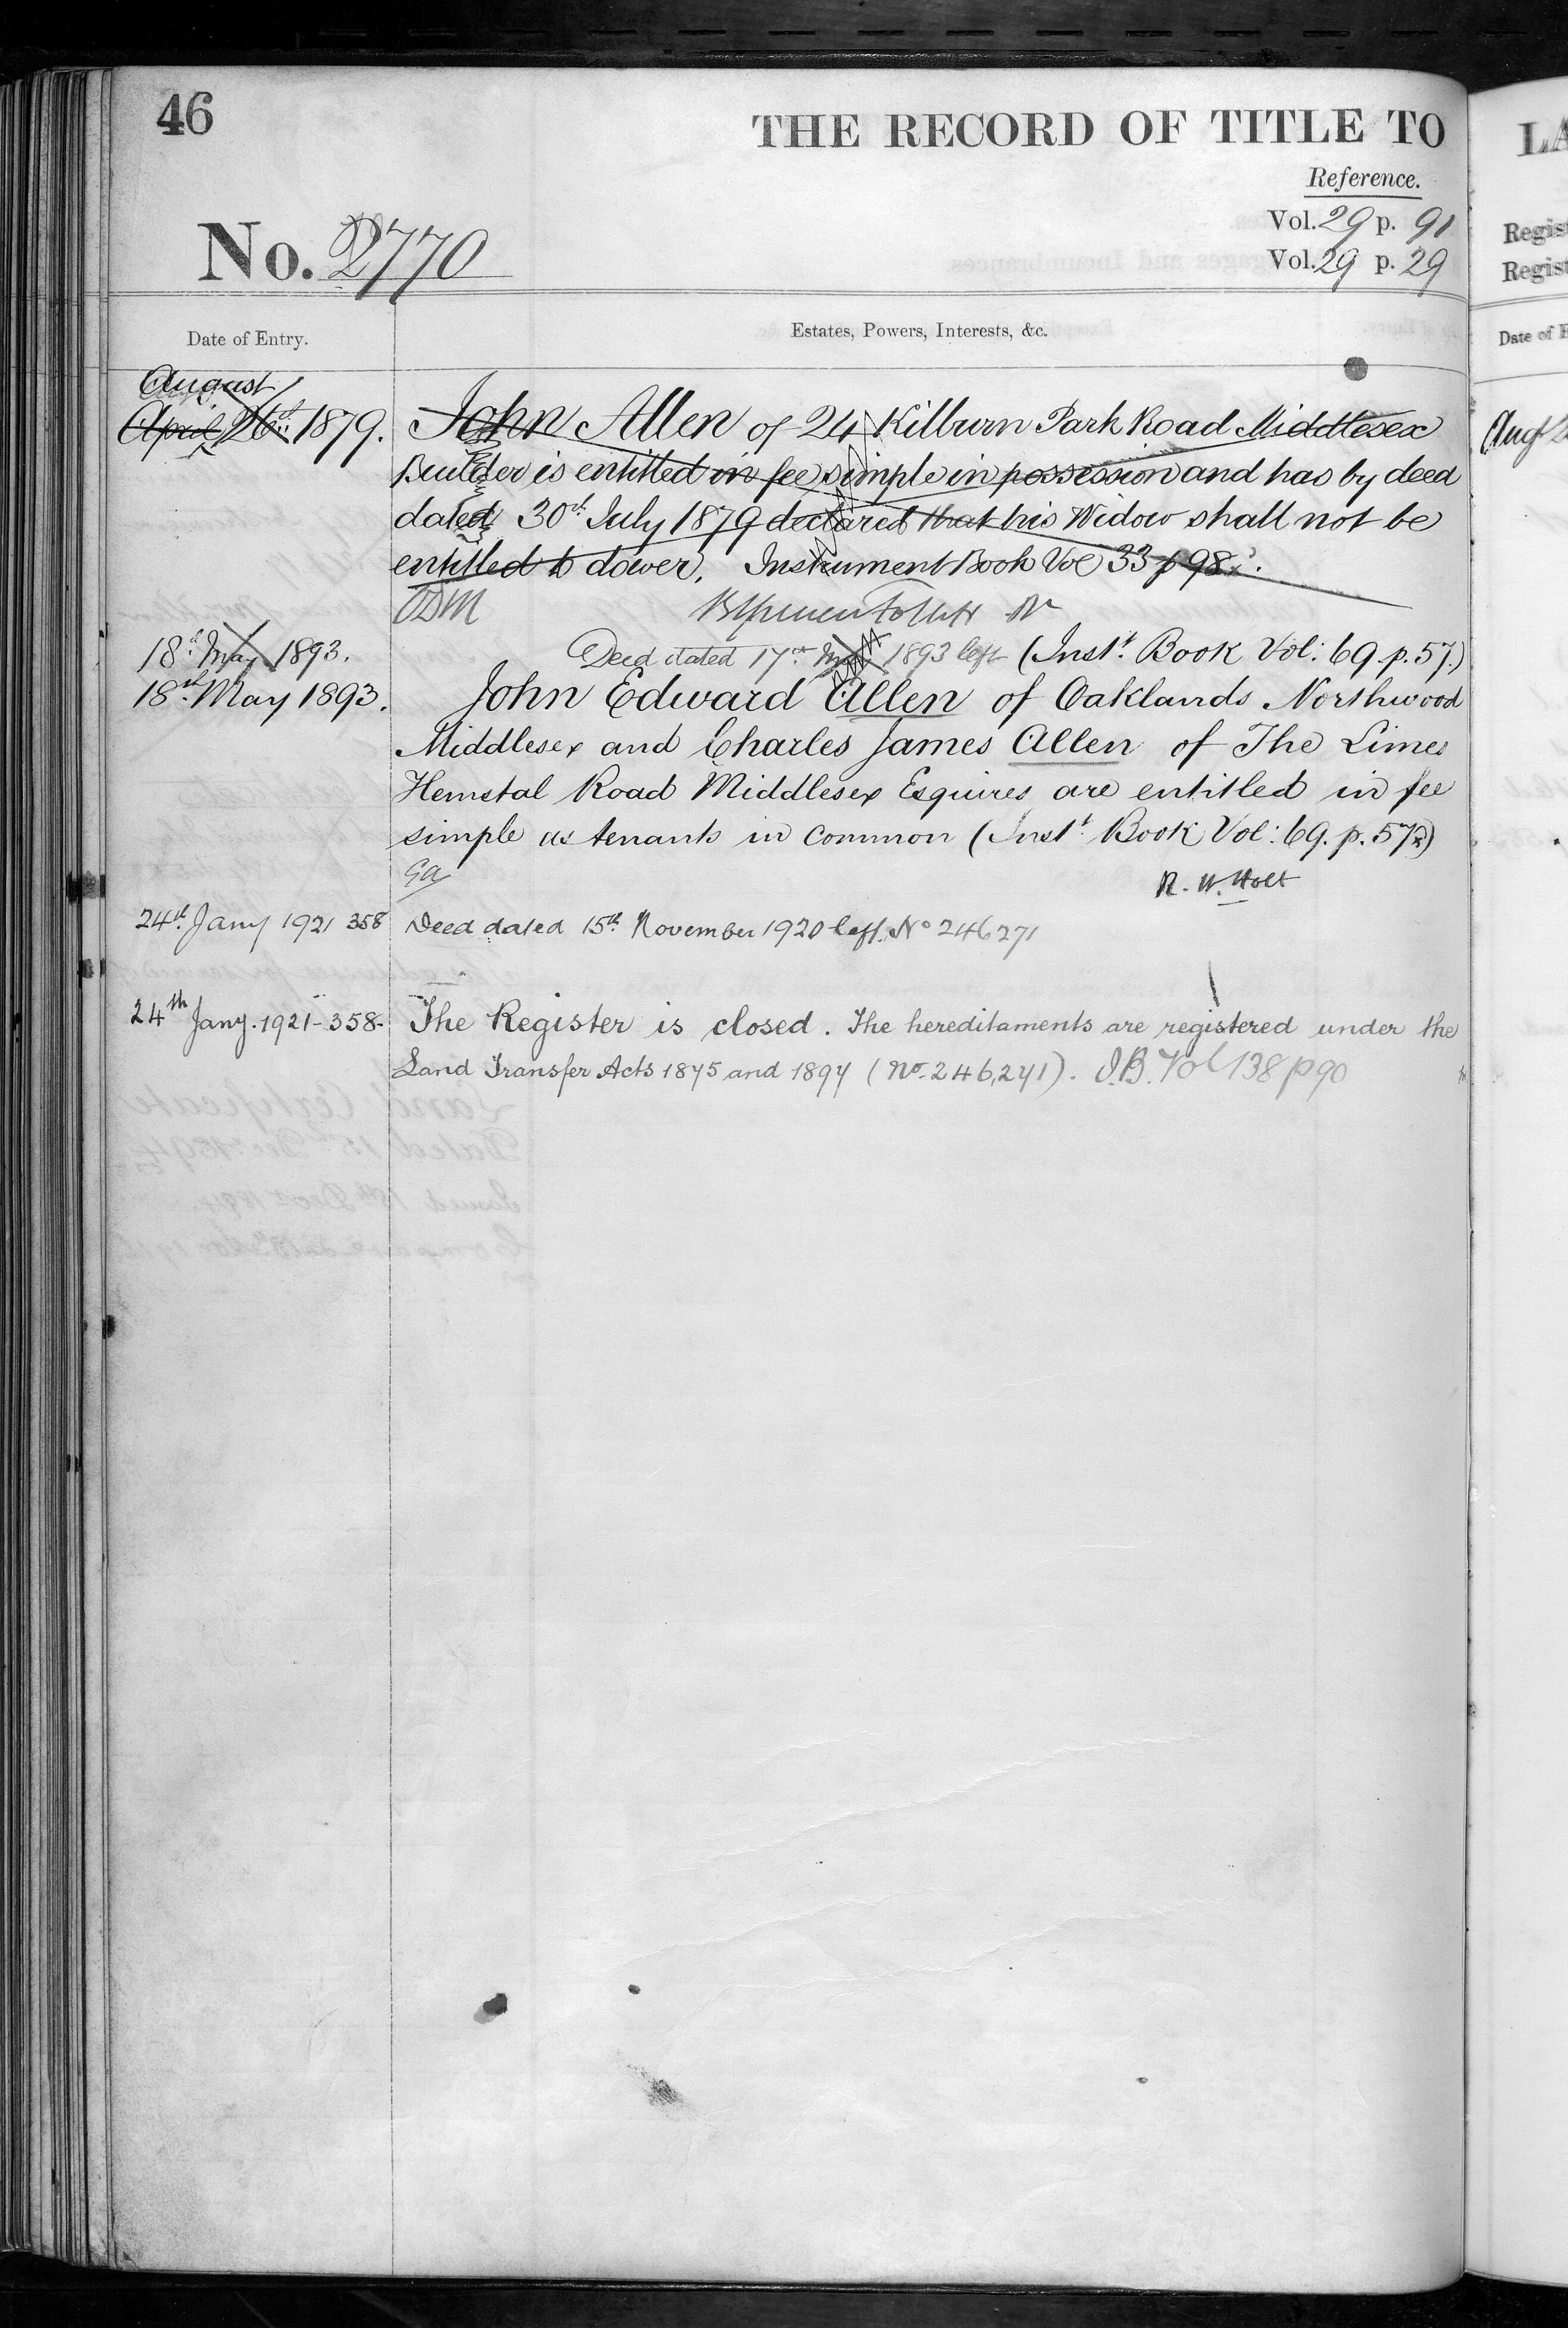 46
THE RECORD OF TITLE TO
Reference.
No. 2770
Vol. 29 p. 91
Vol. 29 p. 29
Date of Entry.
Estates, Powers, Interests, &c.
August
April 26th 1879. John Allen of 24 Kilburn Park Road Middlesex
Builder is entitled in fee simple in possession and has by deed
dated 30th July 1879 declared that his Widow shall not be
entitled to dower. Instrument Book Vol 33 p 98.
18th May 1893. Deed dated 17th 1893 left (Inst. Book Vol: 69. p. 57.)
18th May 1893. John Edward Allen of Oaklands Northwood
Middlesex and Charles James Allen of The Limes
Hemstal Road Middlesex Esquires are entitled in fee
simple as tenants in common (Inst. Book Vol: 69. p. 57)
R. W. Holt
24th Jany 1921 358 Deed dated 15th November 1920 left. No 246271
24th Jany. 1921-358- The Register is closed. The hereditaments are registered under the
Land Transfer Acts 1875 and 1897 (No. 246,271). I.B. Vol 138 p 90
LA
Regis
Regist
Date of E
Augt 2